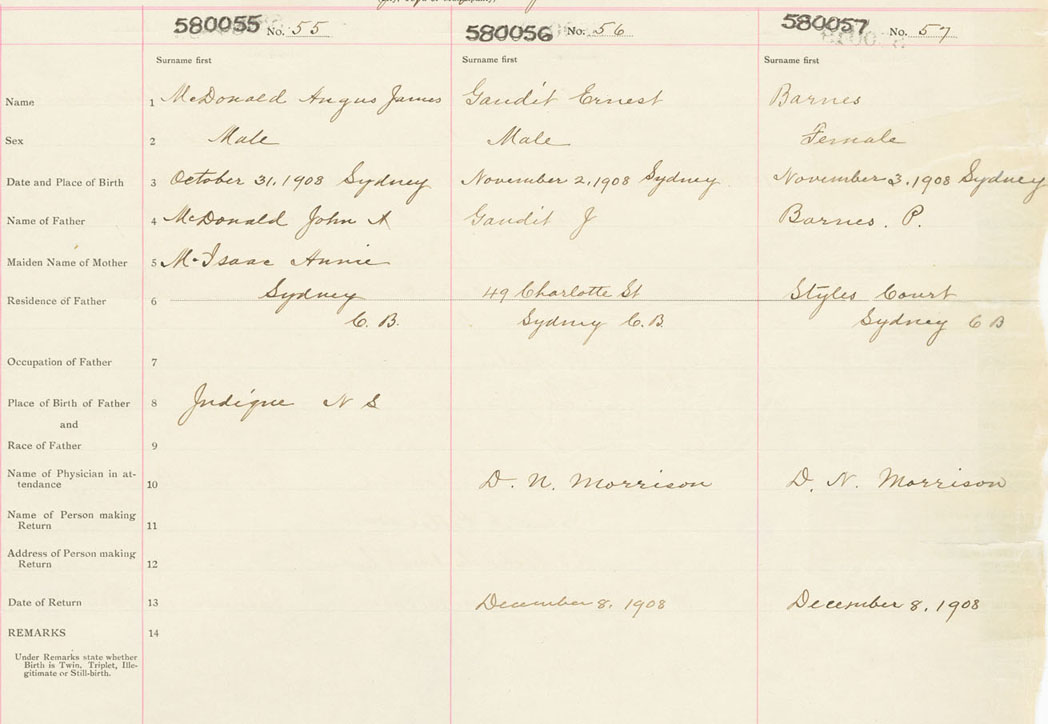 580055 No. 55
580056 No. 56
580057 No. 57
Surname first
Surname first
Surname first
Name 1 McDonald Angus James
Gaudit Ernest
Barnes
Sex 2 Male
Male
Female
Date and Place of Birth 3 October 31, 1908 Sydney
November 2, 1908 Sydney
November 3, 1908 Sydney
Name of Father 4 McDonald John A
Gaudit J
Barnes. P.
Maiden Name of Mother 5 McIsaac Annie
Residence of Father 6 Sydney
C. B.
49 Charlotte St
Sydney C. B.
Styles Court
Sydney C B
Occupation of Father 7
Place of Birth of Father 8 Judique N S
and
Race of Father 9
Name of Physician in at-
tendance 10
D. N. Morrison
D. N. Morrison
Name of Person making
Return 11
Address of Person making
Return 12
Date of Return 13
December 8, 1908
December 8, 1908
REMARKS 14
Under Remarks state whether
Birth is Twin, Triplet, Ille-
gitimate or Still-birth.